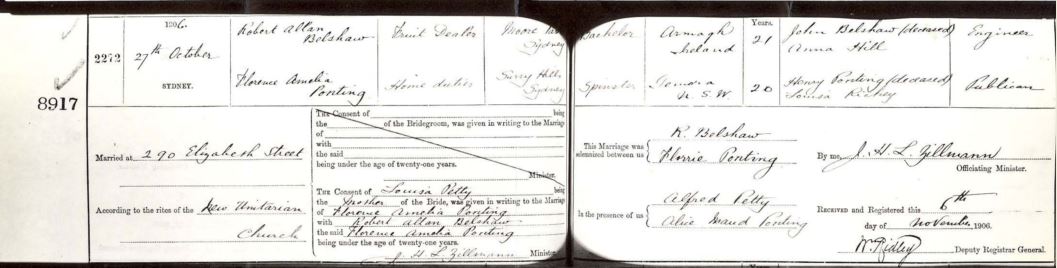 8917
2272
1906.
27th October
SYDNEY.
Robert Allan
Belshaw
Florence Amelia
Ponting
Fruit Dealer
Home duties
Moore
Sydney
Surry Hills
Sydney
Bachelor
Spinster
Armagh
Ireland
Temora
N. S. W.
Years.
21
20
John Belshaw (deceased)
Anna Hill
Henry Ponting (deceased)
Louisa Richey
Engineer
Publican
Married at 290 Elizabeth Street
According to the rites of the New Unitarian
Church
THE Consent of being
the of the Bridegroom, was given in writing to the Marriage
of
with
the said
being under the age of twenty-one years.
Minister.
THE Consent of Louisa Petty being
the Mother of the Bride, was given in writing to the Marriage
of Florence Amelia Ponting
with Robert Allan Belshaw
the said Florence Amelia Ponting
being under the age of twenty-one years.
J. H. L. Zillmann Minister
This Marriage was
solemnized between us
R. Belshaw
Florrie Ponting
In the presence of us
Alfred Petty
Alice Maud Ponting
By me, J. H. L. Zillmann
Officiating Minister.
RECEIVED and Registered this 6th
day of November, 1906.
W. Ridley Deputy Registrar General.